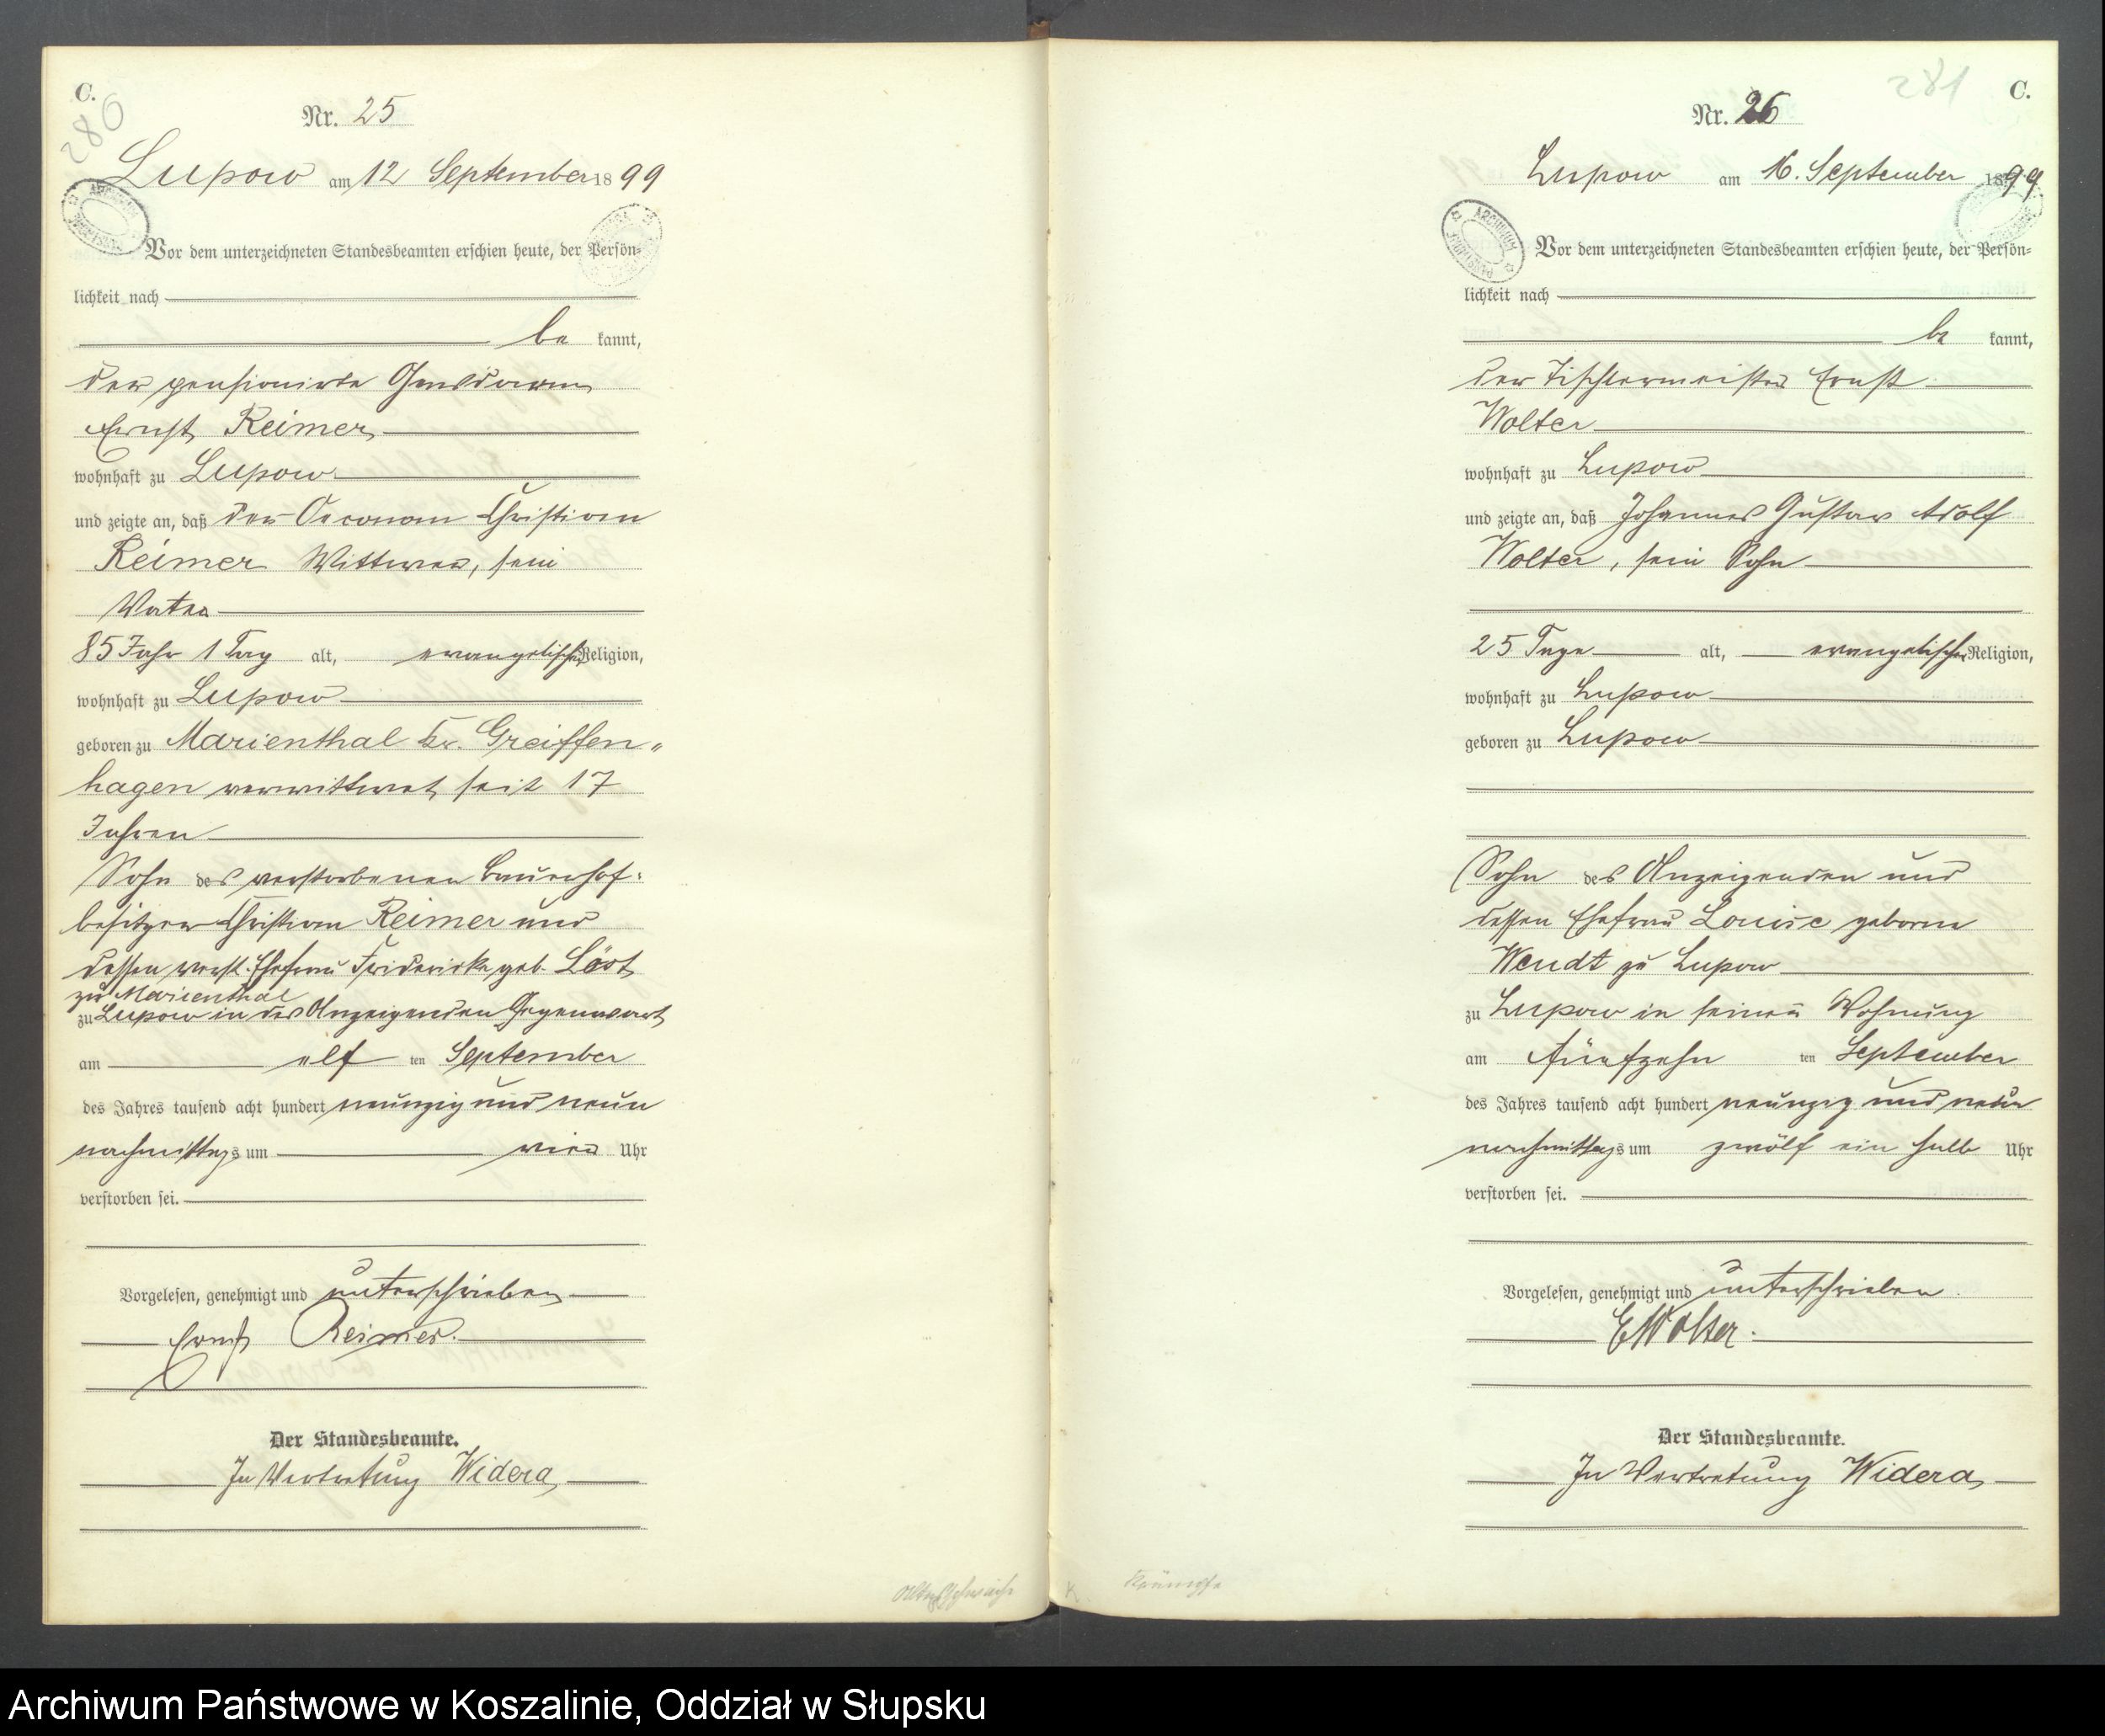 C.
280
Nr. 25
Lupow am 12 September 1899
ARCHIWUM PAŃSTWOWE
Vor dem unterzeichneten Standesbeamten erschien heute, der Persön-
lichkeit nach
be kannt,
der pensionirte Gensdarm
Ernst Reimer
wohnhaft zu Lupow
und zeigte an, daß der Oeconom Christian
Reimer Wittwer, sein
Vater
85 Jahr 1 Tag alt, evangelischer Religion,
wohnhaft zu Lupow
geboren zu Marienthal Kr. Greiffen„
hagen verwittwet seit 17
Jahren
Sohn des verstorbenen Bauerhof-
besitzer Christian Reimer und
dessen verst. Ehefrau Friderike geb.
zu Marienthal
zu Lupow in des Anzeigenden Gegenwart
am elf ten September
des Jahres tausend acht hundert neunzig und neun
nachmittags um vier Uhr
verstorben sei.
Vorgelesen, genehmigt und unterschrieben
Ernst Reimer.
Der Standesbeamte.
In Vertretung Widera
Altersschwäche
281
C.
Nr. 26
Lupow am 16. September 1899
ARCHIWUM PAŃSTWOWE
Vor dem unterzeichneten Standesbeamten erschien heute, der Persön-
lichkeit nach
be kannt,
der Tischlermeister Ernst
Wolter
wohnhaft zu Lupow
und zeigte an, daß Johannes Gustav Adolf
Wolter, sein Sohn
25 Tage alt, evangelischer Religion,
wohnhaft zu Lupow
geboren zu Lupow
Sohn des Anzeigenden und
dessen Ehefrau Louise geborne
Wendt zu Lupow
zu Lupow in seiner Wohnung
am fünfzehn ten September
des Jahres tausend acht hundert neunzig und neun
nachmittags um zwölf ein halb Uhr
verstorben sei.
Vorgelesen, genehmigt und unterschrieben.
E Wolter.
Der Standesbeamte.
In Vertretung Widera
Krämpfe
Archiwum Państwowe w Koszalinie, Oddział w Słupsku